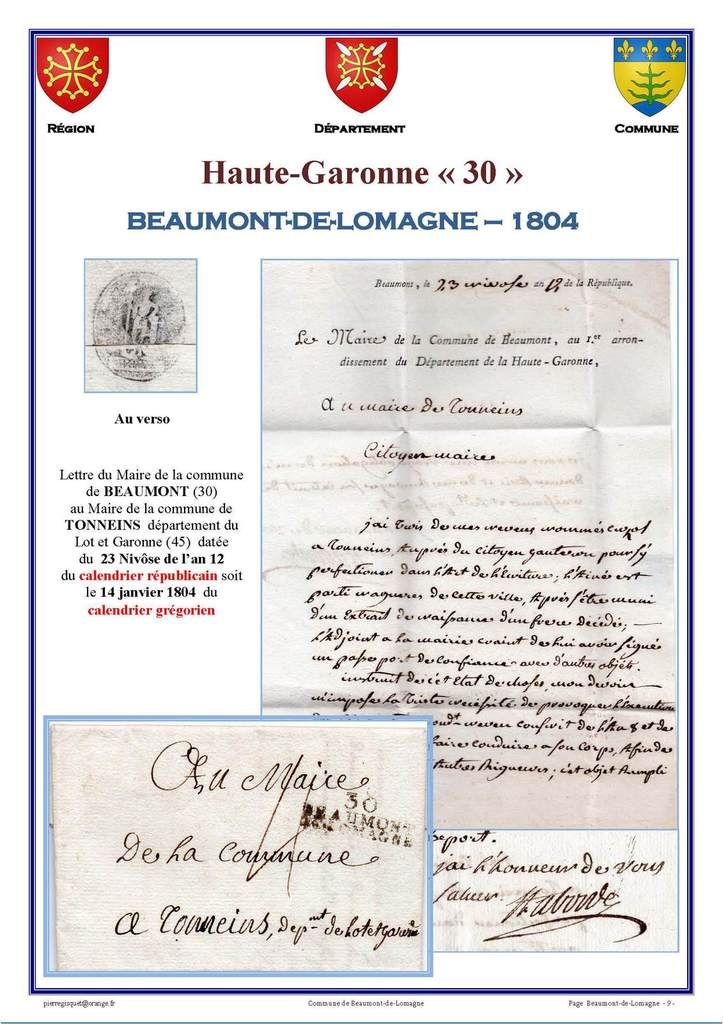 RÉGION
DÉPARTEMENT
COMMUNE
Haute-Garonne « 30 »
BEAUMONT-DE-LOMAGNE – 1804
Au verso
Lettre du Maire de la commune
de BEAUMONT (30)
au Maire de la commune de
TONNEINS département du
Lot et Garonne (45) datée
du 23 Nivôse de l'an 12
du calendrier républicain soit
le 14 janvier 1804 du
calendrier grégorien
Beaumont, le 23 nivose an 12 de la République.
Le Maire de la Commune de Beaumont, au 1.er arron-
dissement du Département de la Haute-Garonne,
Au maire de Tonneins
Citoyen maire
j'ai trois de mes neveux nommés
a Tonneins, Auprès du Citoyen pour s'y
perfectioner dans l'Art de l'écriture; l'Ainé est
parti de cette ville, Après s'être muni
d'un Extrait de naissance d'un frere décédé;
l'Adjoint a la mairie de lui avoir signé
un passeport de confiance avec d'autres objets.
instruit de cet Etat de choses, mon devoir
m'impose la Triste nécessité de provoquer l'Execution
neveu conscrit de l'An 8 et de
faire conduire a son Corps, Afin de
autres Rigueurs; cet objet Rempli
j'ai l'honneur de vous
saluer
Au Maire
30
BEAUMONT
De la Commune
a Tonneins, dep.mt de lot et garonne
pierregisquet@orange.fr
Commune de Beaumont-de-Lomagne
Page Beaumont-de-Lomagne - 9 -